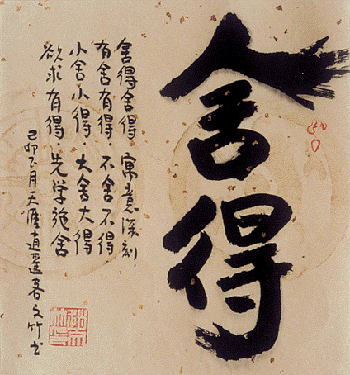 舍得
舍得舍得·寓意深刻
有舍有得·不舍不得
小舍小得·大舍大得
欲求有得·先学施舍
己卯乙月天涯逍遥客文竹书